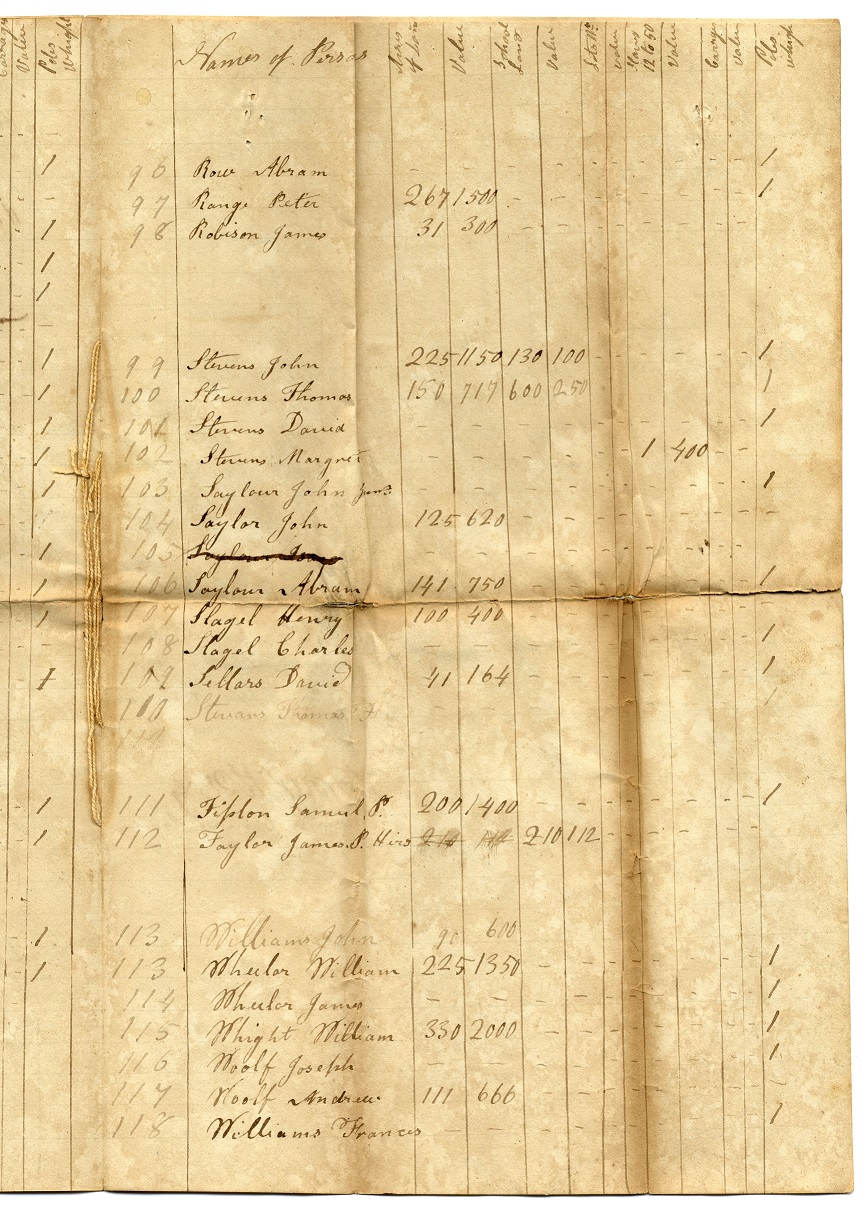 Carrages Value Poles Whight Names of Persos Acres of Land Value School Land Value Value Slaves 12 to 50 Value Carrage Value Poles Whigh
1 96 Row Abram - - - - - - - - - - 1
97 Range Peter 267 1500 - - - - - - - - 1
1 98 Robison James 31 300 - - - - - - - -
1
1
1 99 Stevens John 225 1150 130 100 - - - - - - 1
1 100 Stevens Thomas 150 717 600 250 - - - - - - 1
1 101 Stevens David - - - - - - - - - - 1
1 102 Stevens Margret - - - - - - 1 400 - -
1 103 Saylour John - - - - - - - - - - 1
104 Saylor John 125 620 - - - - - - - -
1 105 Saylour - - - - - - - - - -
1 106 Saylour Abram 141 750 - - - - - - - - 1
1 107 Slagel Henry 100 400 - - - - - - - -
108 Slagel Charles - - - - - - - - - - 1
1 109 Sellars David 41 164 - - - - - - - - 1
110 Stevans Thomas H - - - - - - - - - - 1
1 111 Tipton Samuel P. 200 1400 - - - - - - - - 1
1 112 Taylor James. P. Hirs 210 112 210 112 - - - - - -
1 113 Williams John 90 600
1 113 Wheelor William 225 1350 - - - - - - - - 1
114 Wheelor James - - - - - - - - - - 1
115 Whight William 330 2000 - - - - - - - - 1
116 Woolf Joseph - - - - - - - - - - 1
117 Woolf Andrew 111 666 - - - - - - - -
118 Williams Frances - - - - - - - - - - 1